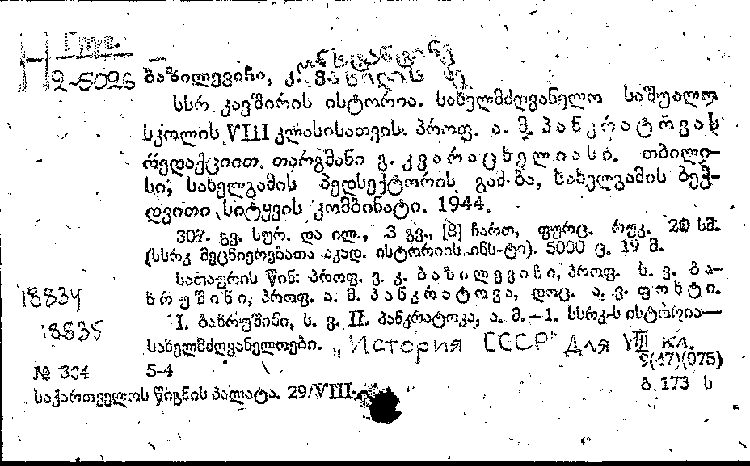 2-5026
ბაზილევიჩი, კ.
სსრ კავშირის ისტორია. სახელმძღვანელო საშუალო
სკოლის VIII კლასისათვის. პროფ. ა. მ. პანკრატოვას
რედაქციით. თარგმანი გ. კვარაცხელიასი. თბილი-
სი, სახელგამის პედსექტორის გამ-ბა, სახელგამის ბეჭ-
დვითი სიტყვის კომბინატი. 1944.
307. გვ. სურ. და ილ., 3 გვ., [8] ჩართ, ფურც. რუკ. 20 სმ.
(სსრკ მეცნიერებათა აკად. ისტორიის ინს-ტი). 5000 ც. 19 მ.
სათაურის წინ: პროფ. ვ. კ. ბაზილევიჩი, პროფ. ს. ვ. ბა-
ხრუშინი, პროფ. ა. მ. პანკრატოვა, დოც. ა. ვ. ფოხტი.
18834
I. ბახრუშინი, ს. ვ. II. პანკრატოვა, ა. მ.—1. სსრკ-ს ისტორია—
18835
სახელმძღვანელოები. „История СССР" Для VIII кл.
9(47)(075)
№ 304 5-4
ბ. 173 ს
საქართველოს წიგნის პალატა. 29/VIII